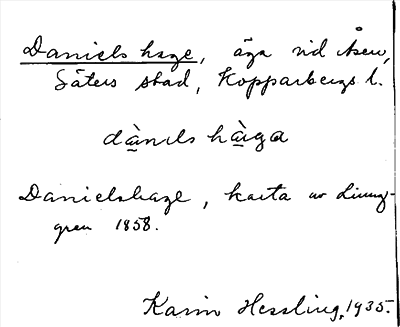 Daniels hage, äga vid Åsen,
Säters stad, Kopparbergs l.
dà̱nɩls hà̱ga
Danielshage, karta av Ljung-
gren 1858.
Karin Hessling, 1935.